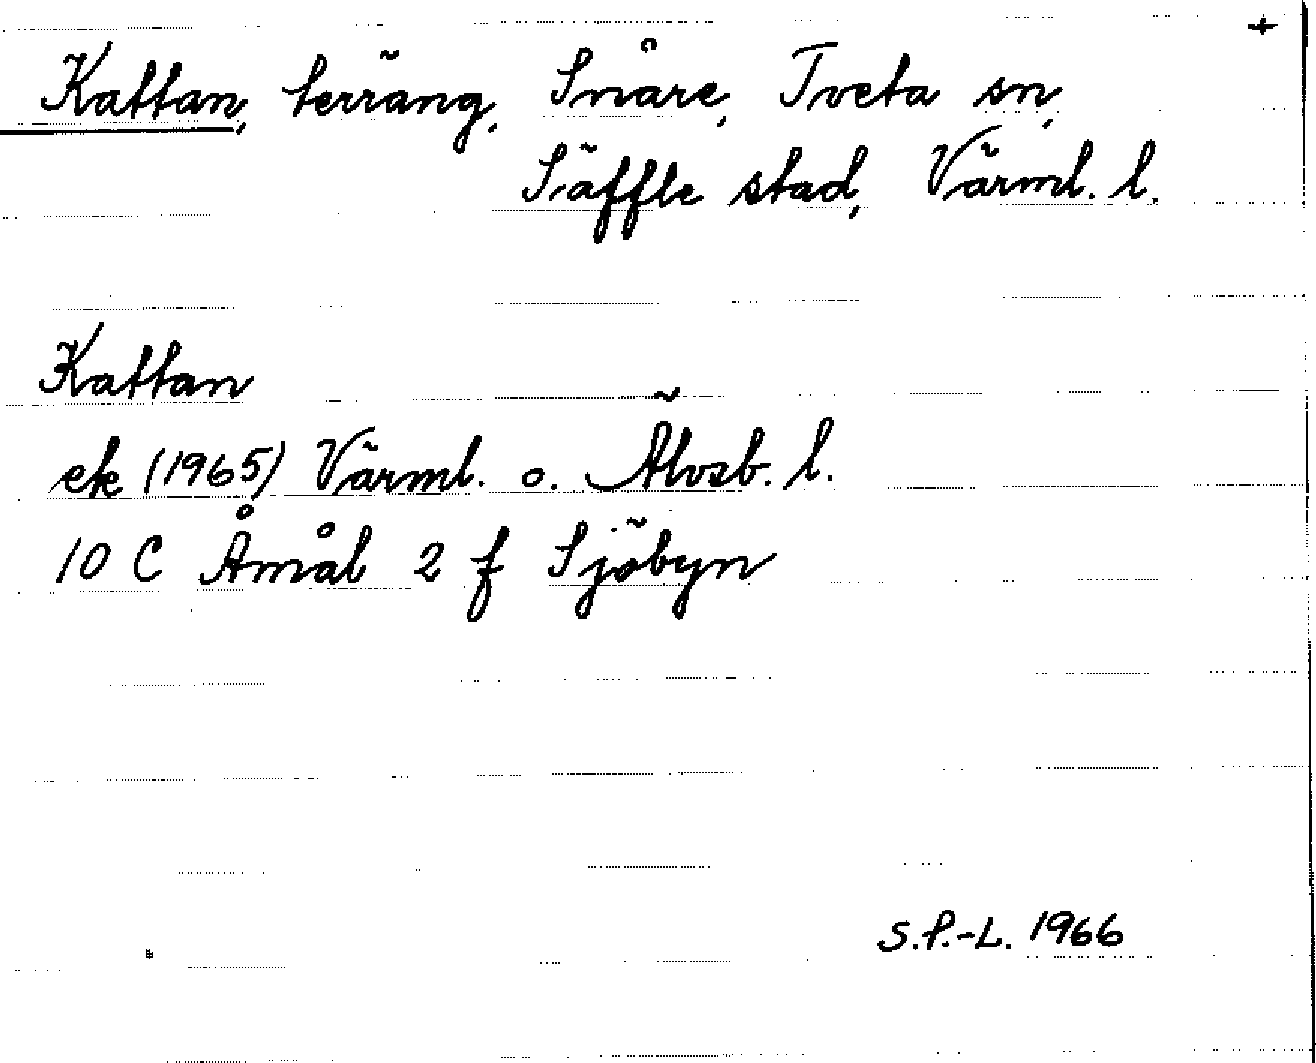 +
Kattan, terräng, Snåre, Tveta sn,
Säffle stad, Värml. l.
Kattan
ek (1965) Värml. o. Älvsb. l.
10 C Åmål 2 f Sjöbyn
S.P.-L. 1966